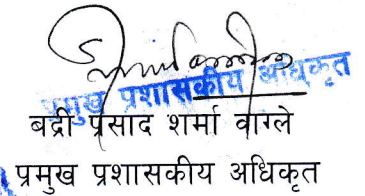 प्रमुख प्रशासकीय अधिकृत
बद्री प्रसाद शर्मा वाग्ले
प्रमुख प्रशासकीय अधिकृत